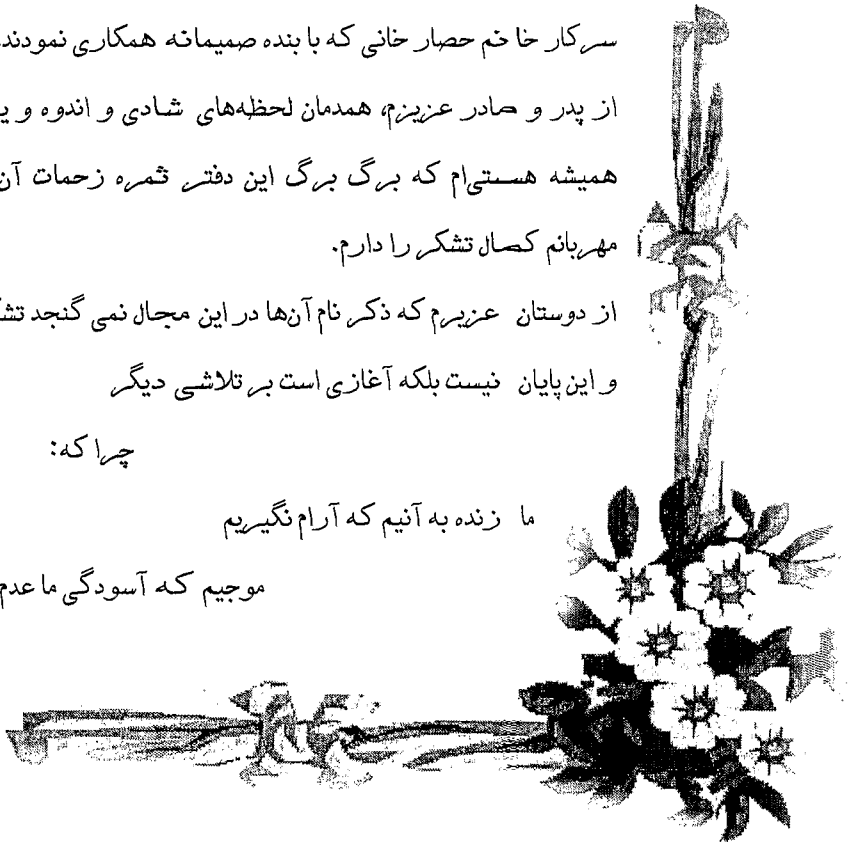 سرکار خانم حصار خانی که با بنده صمیمانه همکاری نمودند
از پدر و مادر عزیزم، همدمان لحظه‌های شادی و اندوه و
همیشه هستی‌ام که برگ برگ این دفتر ثمره زحمات
مهربانم کمال تشکر را دارم.
از دوستان عزیزم که ذکر نام آن‌ها در این مجال نمی گنجد
و این پایان نیست بلکه آغازی است بر تلاشی دیگر
چرا که:
ما زنده به آنیم که آرام نگیریم
موجیم که آسودگی ما عدم